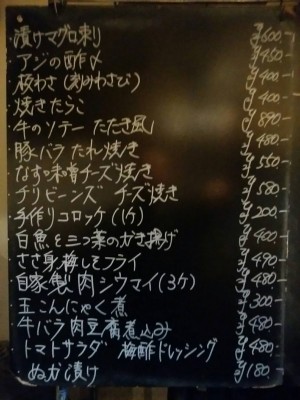 ・漬けマグロ刺 ¥500-
・アジの酢〆 ¥450-
・板わさ(刻みわさび) ¥400-
・焼きたらこ ¥400-
・牛のソテー たたき風 ¥890-
・豚バラ たれ焼き ¥480-
・なす味噌チーズ焼き ¥550-
・チリビーンズ チーズ焼き ¥580-
・手作りコロッケ(1ケ) ¥200-
・白魚と三つ葉のかき揚げ ¥400-
・ささ身梅しそフライ ¥490-
・自家製肉シウマイ(3ケ) ¥480-
・玉こんにゃく煮 ¥300-
・牛バラ肉豆腐煮込み ¥480-
・トマトサラダ 梅酢ドレッシング ¥480-
・ぬか漬け ¥180-